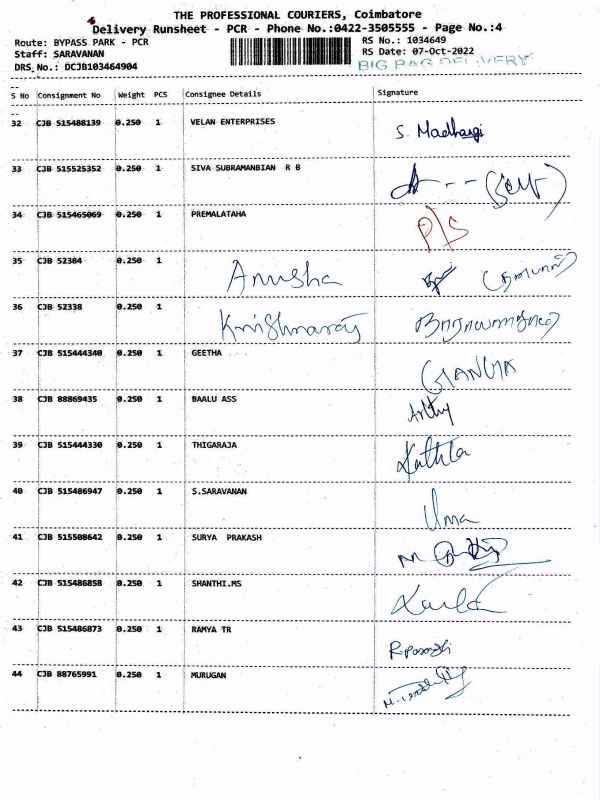 THE PROFESSIONAL COURIERS, Coimbatore
Delivery Runsheet - PCR - Phone No.:0422-3505555 - Page No.:4
Route: BYPASS PARK - PCR RS No.: 1034649
Staff: SARAVANAN RS Date: 07-Oct-2022
DRS No.: DCJB103464904 BIG BAG DELIVERY
S No Consignment No Weight PCS Consignee Details Signature
32 CJB 515488139 0.250 1 VELAN ENTERPRISES S. Madhangi
33 CJB 515525352 0.250 1 SIVA SUBRAMANBIAN R B
34 CJB 515465069 0.250 1 PREMALATAHA P/S
35 CJB 52384 0.250 1 Anusha
36 CJB 52338 0.250 1 Krishnaraj
37 CJB 515444340 0.250 1 GEETHA
38 CJB 88869435 0.250 1 BAALU ASS
39 CJB 515444330 0.250 1 THIGARAJA
40 CJB 515486947 0.250 1 S.SARAVANAN Uma
41 CJB 515508642 0.250 1 SURYA PRAKASH
42 CJB 515486858 0.250 1 SHANTHI.MS
43 CJB 515486873 0.250 1 RAMYA TR
44 CJB 88765991 0.250 1 MURUGAN